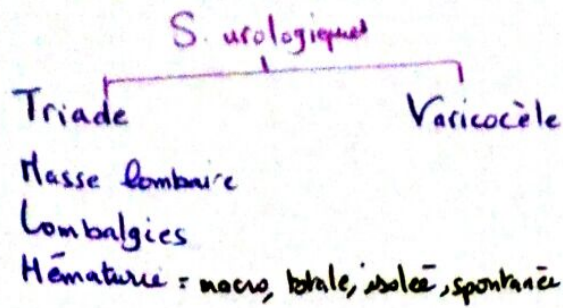 S. urologiques
Triade
Varicocèle
Masse lombaire
Lombalgies
Hématurie = macro, totale, isolée, spontanée